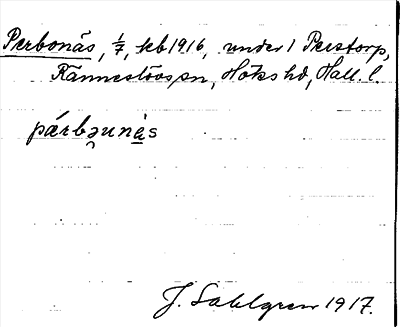 Perbonäs, 1/7, skb 1916, under 1 Perstorp,
Ränneslövs sn, Höks hd, Hall. l.
párbəunà̱s
J. Sahlgren 1917.